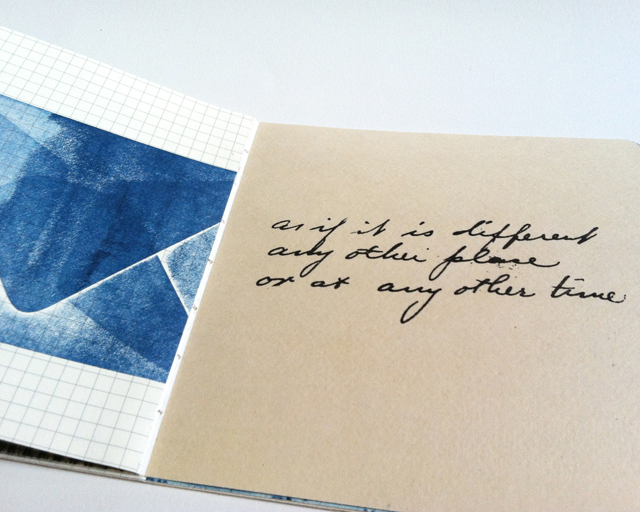 as if it is different
any other place
or at any other time